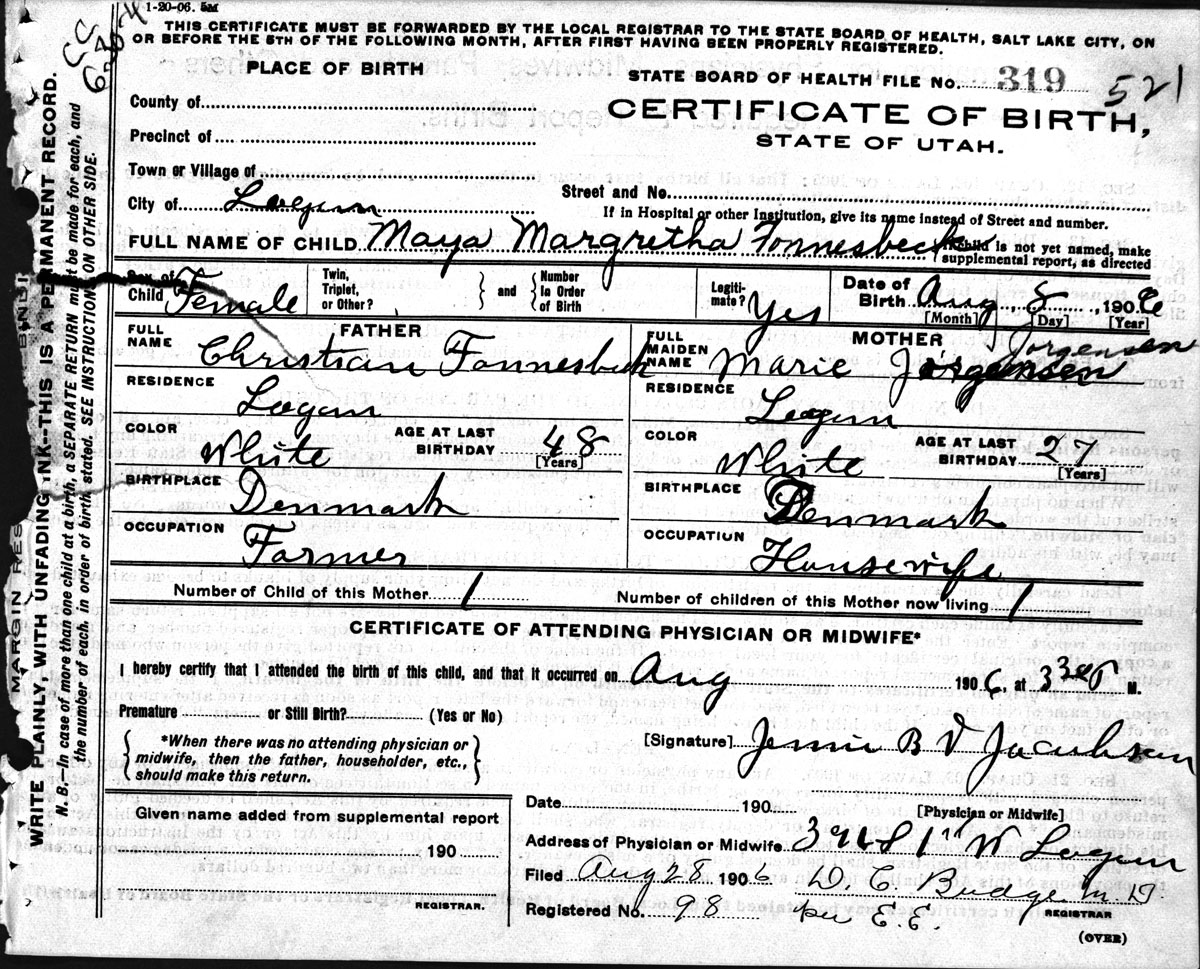 1-20-06. 5M
THIS CERTIFICATE MUST BE FORWARDED BY THE LOCAL REGISTRAR TO THE STATE BOARD OF HEALTH, SALT LAKE CITY, ON
OR BEFORE THE 5TH OF THE FOLLOWING MONTH, AFTER FIRST HAVING BEEN PROPERLY REGISTERED.
PLACE OF BIRTH
STATE BOARD OF HEALTH FILE No. 319 521
County of
CERTIFICATE OF BIRTH,
Precinct of
STATE OF UTAH.
Town or Village of
Street and No.
City of Logan
If in Hospital or other Institution, give its name instead of Street and number.
FULL NAME OF CHILD Maya Margretha Fonnesbeck
If child is not yet named, make
supplemental report, as directed
Sex of Child Female
Twin, Triplet, or Other?
and
Number In Order of Birth
Legiti-mate? Yes
Date of Birth Aug 8, 1906
[Month] [Day] [Year]
FATHER
FULL NAME Christian Fonnesbeck
RESIDENCE Logan
COLOR White
AGE AT LAST BIRTHDAY 48
[Years]
BIRTHPLACE Denmark
OCCUPATION Farmer
MOTHER
Jorgensen
FULL MAIDEN NAME Marie Jorgensen
RESIDENCE Logan
COLOR White
AGE AT LAST BIRTHDAY 27
[Years]
BIRTHPLACE Denmark
OCCUPATION Housewife
Number of Child of this Mother 1
Number of children of this Mother now living 1
CERTIFICATE OF ATTENDING PHYSICIAN OR MIDWIFE*
I hereby certify that I attended the birth of this child, and that it occurred on Aug 1906, at 3 30 P M.
Premature or Still Birth? (Yes or No)
*When there was no attending physician or
midwife, then the father, householder, etc.,
should make this return.
[Signature] Jennie B Jacobsen
Date 190
[Physician or Midwife]
Given name added from supplemental report
190
REGISTRAR.
Address of Physician or Midwife 1st W Logan
Filed Aug 28 1906 D. C. Budge M.D.
REGISTRAR
Registered No. 98 per E.E.
(OVER)
MARGIN RES
BINDI
WRITE PLAINLY, WITH UNFADING INK--THIS IS A PERMANENT RECORD.
N. B.—In case of more than one child at a birth, a SEPARATE RETURN must be made for each, and
the number of each, in order of birth, stated. SEE INSTRUCTIONS ON OTHER SIDE.